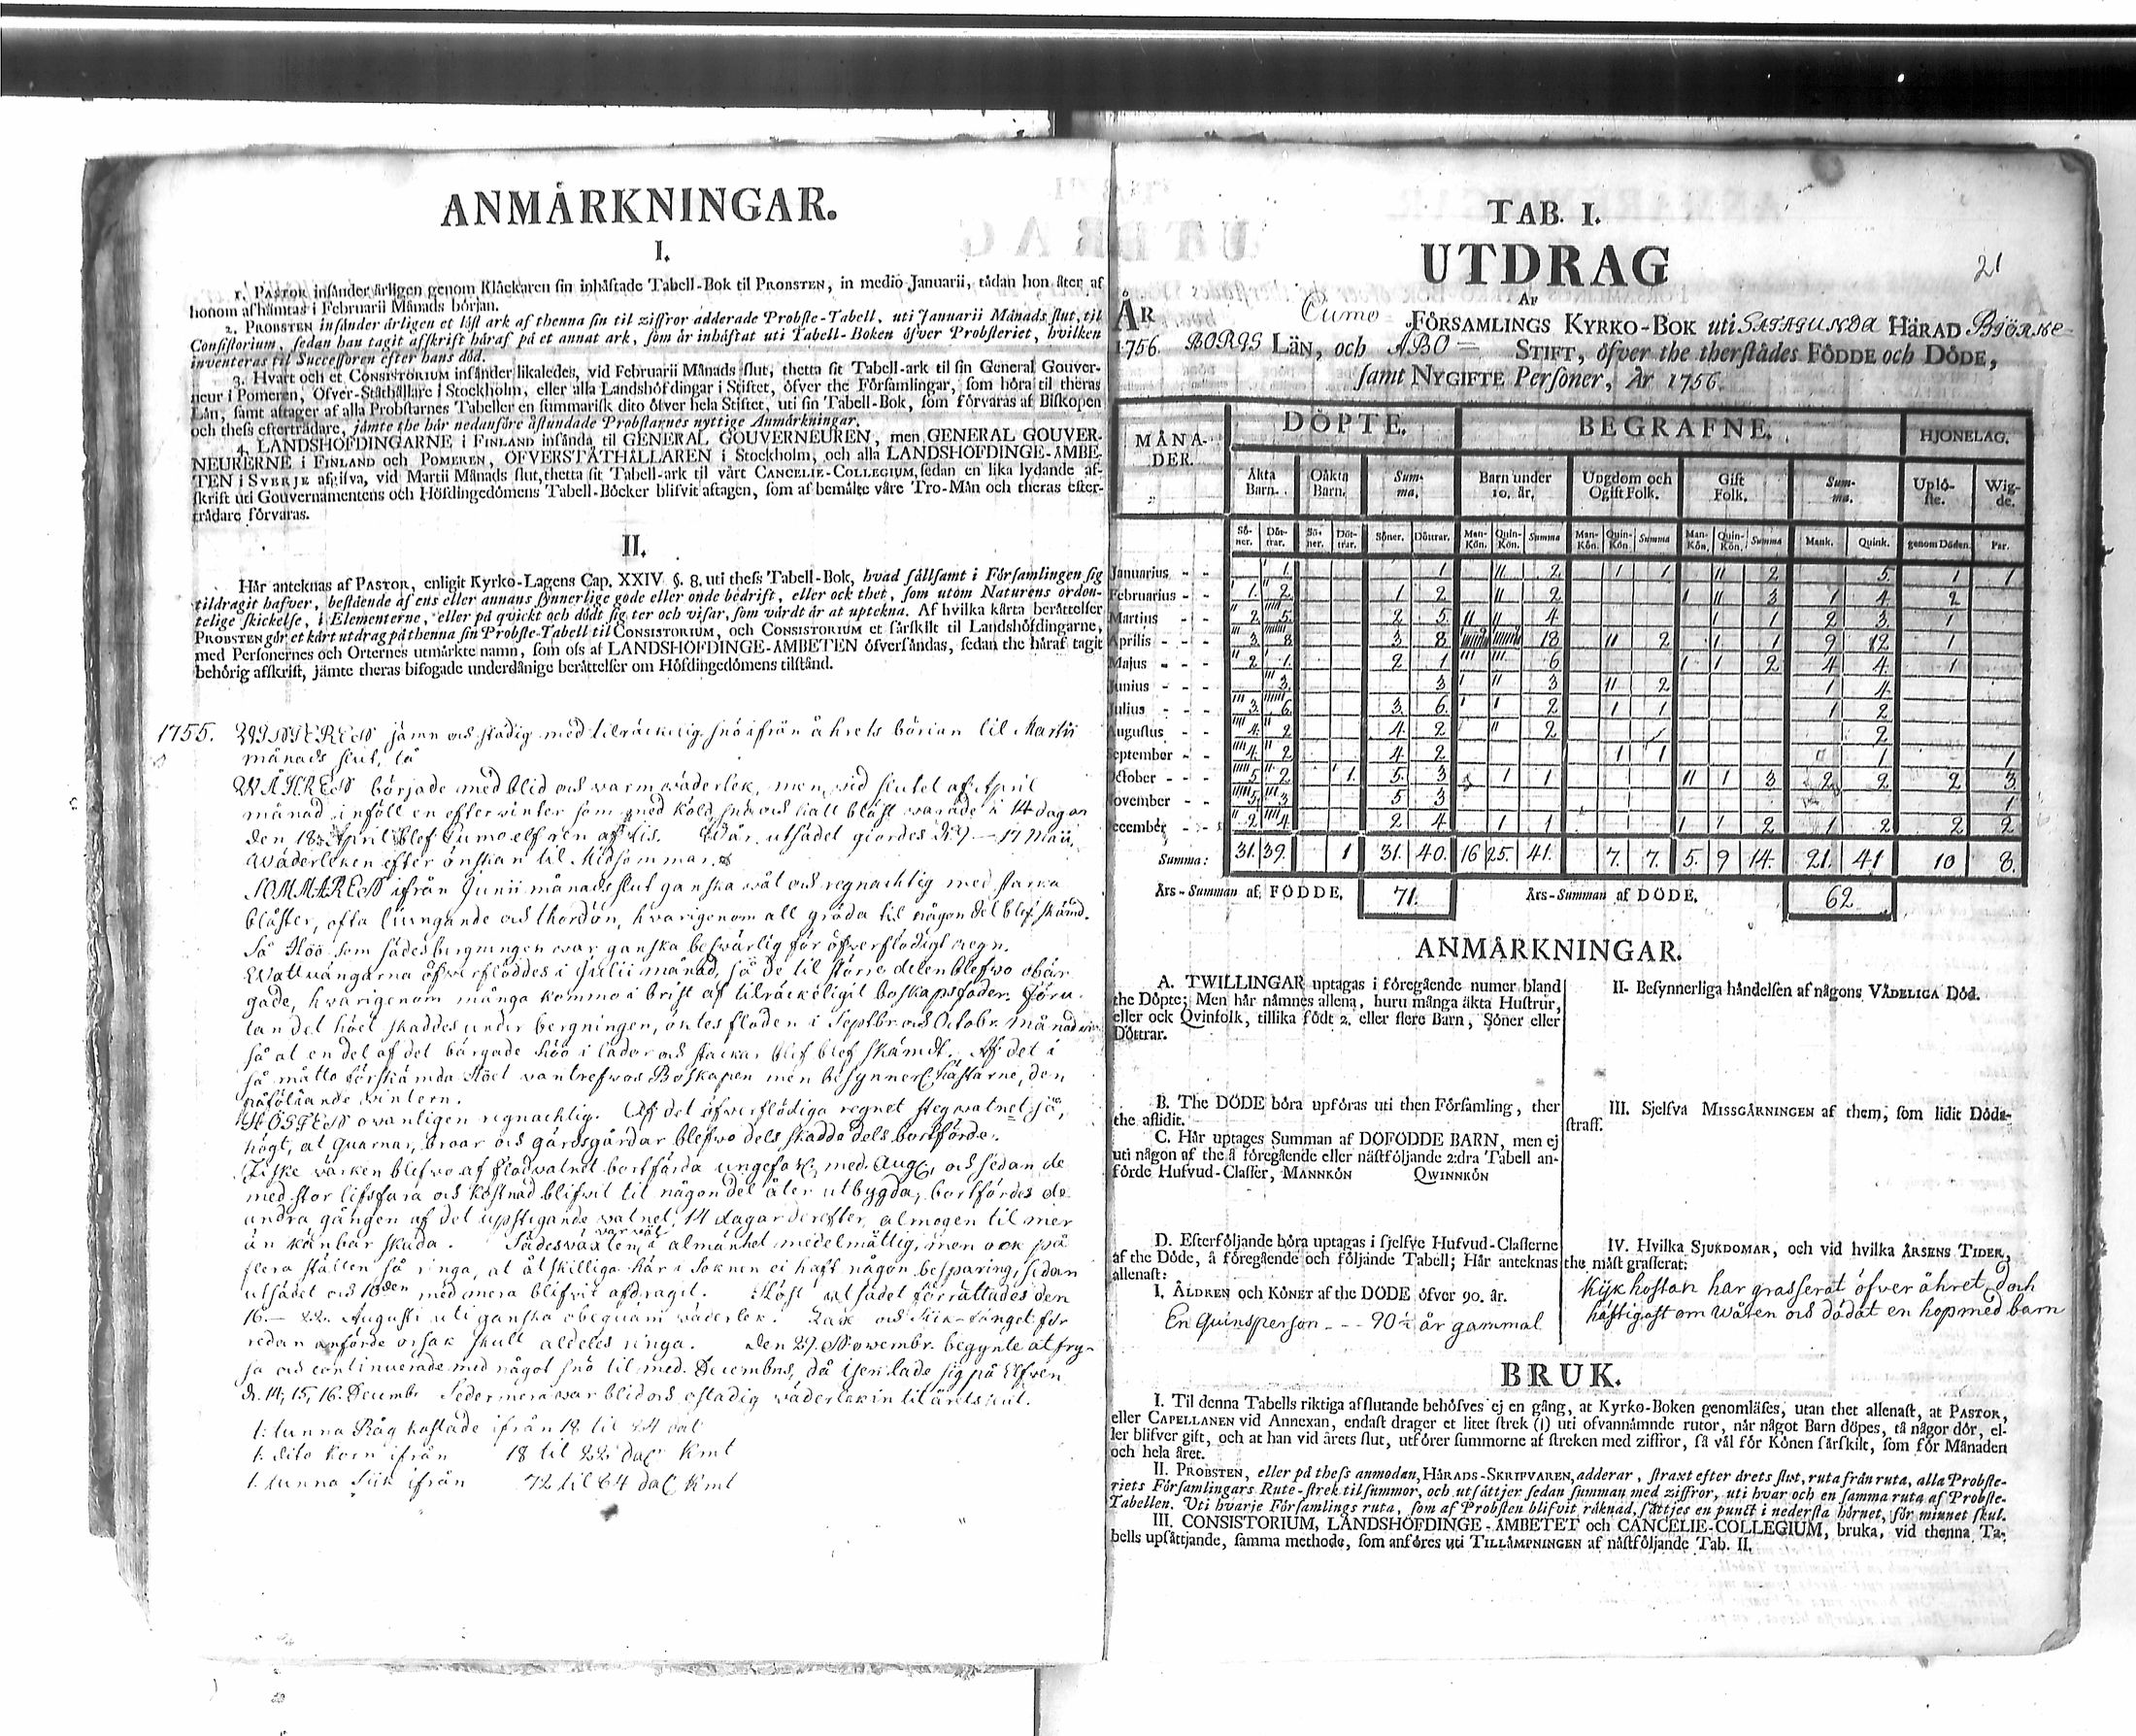 ANMÅRKNINGAR.
I.
1. PASTOR insånder årligen genom Klåckaren sin inhåftade Tabell-Bok til PROBSTEN, in medio Januarii, tådan hon åter af
honom afhåmtas i Februarii Månads början.
2. PROBSTEN insånder årligen et låst ark af thenna sin til ziffror adderade Probste-Tabell, uti Januarii Månads slut, til
Consistorium, sedan han tagit afskrift håraf på et annat ark, som år inhåftat uti Tabell-Boken öfver Probsteriet, hvilken
inventeras til Successoren efter hans död.
3. Hvart och et CONSISTORIUM insånder likaledes, vid Februarii Månads slut, thetta sit Tabell-ark til sin General Gouver-
neur i Pomeren, Öfver-Ståthållare i Stockholm, eller alla Landshöfdingar i Stiftet, öfver the Församlingar, som höra til theras
Lån, samt aftager af alla Probstarnes Tabeller en summarisk dito öfver hela Stiftet, uti sin Tabell-Bok, som förvaras af Biskopen
och thess eftertrådare, jåmte the hår nedanföre åstundade Probstarnes nyttige Anmårkningar.
4. LANDSHÖFDINGARNE i FINLAND insånda til GENERAL GOUVERNEUREN, men GENERAL GOUVER-
NEURERNE i FINLAND och POMEREN, ÖFVERSTÅTHÅLLAREN i Stockholm, och alla LANDSHÖFDINGE-ÅMBE-
TEN i SVERJE afgifva, vid Martii Månads slut, thetta sit Tabell-ark til vårt CANCELIE-COLLEGIUM, sedan en lika lydande af-
skrift uti Gouvernamentens och Höfdingedömens Tabell-Böcker blifvit aftagen, som af bemålte våre Tro-Mån och theras efter-
trådare förvaras.
II.
Hår anteknas af PASTOR, enligit Kyrko-Lagens Cap. XXIV §. 8. uti thess Tabell-Bok, hvad sållsamt i Församlingen sig
tildragit hafver, bestående af ens eller annans synnerlige gode eller onde bedrift, eller ock thet, som utom Naturens orden-
telige skickelse, i Elementerne, eller på quickt och dödt sig ter och visar, som vårdt år at uptekna. Af hvilka kårta beråttelser
PROBSTEN gör et kårt utdrag på thenna sin Probste-Tabell til CONSISTORIUM, och CONSISTORIUM et sårskilt til Landshöfdingarne,
med Personernes och Orternes utmårkte namn, som oss af LANDSHÖFDINGE-ÅMBETEN öfversåndas, sedan the håraf tagit
behörig afskrift, jåmte theras bifogade underdånige beråttelser om Höfdingedömens tilstånd.
1755. WINTEREN jämn och stadig med tilräckelig snö ifrån åhrets början til Martii
månads slut, tå
WÅHREN började med blid och warm wäderlek, men wid slutet af April
månad inföll en efterwinter som med köld snö och kall blåst warade i 14 dagar
den 18 April blef Cumo elf ren af Jis. Wår utsädet giordes d. 9 - 17 Maii,
Wäderleken efter önskan til Midsommar.
SOMMAREN ifrån Junii månads slut ganska wåt och regnachtig med starka
blåster, ofta liungande och thordön, hwarigenom all gröda til någon del blef skämd.
Så Höö som sädesbergningen war ganska beswärlig för öfwerflödigt regn.
Wattuängarna öfwerflöddes i Julii månad, så de til större delen blefwo obär
gade, hwarigenom många kommo i brist af tilräckeligit boskapsfoder. Föru
tan det höet skaddes under bergningen, öktes floden i Septbr. och Octobr. månad
så at en del af det bärgade höö i lador och stackar blef skämdt. Af det i
så måtto förskämda Höet wantrefwos Boskapen men besynnerl. hästarne, den
påföljande wintern.
HÖSTEN owanligen regnachtig. Af det öfwerflödiga regnet steg watnet så
högt, at Quarnar, broar och gärdsgårdar blefwo dels skadde dels bortförde.
Fiske wärken blefwo af flodwatnet bortförda ungefär med. Aug. och sedan de
med stor lifsfara och kostnad blifwit til någon del åter utbygda, bortfördes de
andra gången af det upstigande watnet, 14 dagar derefter, almogen til mer
än känbar skada. Sädeswäxten war wäl i almänhet medelmåttig, men ock på
flera ställen så ringa, at åtskilliga här i Soknen ei haft någon besparing, sedan
utsädet och 10den med mera blifwit afdragit. Höst utsädet förrättades den
16 - 22 Augusti uti ganska obequäm wäderlek.
redan anförde orsak skull aldeles ringa. Den 29. Nowembr. begynte at fry-
sa och continuerade med något snö til med. Decembris, då isen lade sig på Elfwen
d. 14, 15, 16. Decembr. Sedermera war blid och ostadig wäderlek in til årets slut.
1. tunna Råg kostade ifrån 18 til 24 dal
1. dito Korn ifrån 18 til 22 dal Kmt
1. tunna Siik ifrån 72 til 64 dal Kmt
TAB. I.
UTDRAG
21
AF
ÅR Cumo FÖRSAMLINGS KYRKO-BOK uti SATAGUNDA HÅRAD BIÖRNE-
1756. BORGS LÅN, och ÅBO STIFT, öfver the therstådes FÖDDE och DÖDE,
samt NYGIFTE Personer, År 1756.
MÅNA-DER. DÖPTE. BEGRAFNE. HJONELAG.
Åkta Barn. Oåkta Barn. Sum-ma. Barn under 10. år. Ungdom och Ogift Folk. Gift Folk. Sum-ma. Uplö-ste. Wig-de.
Sö-ner. Döt-trar. Sö-ner. Döt-trar. Söner. Döttrar. Man-Kön. Quin-Kön. Summa Man-Kön. Quin-Kön. Summa Man-Kön. Quin-Kön. Summa Mank. Quink. genom Döden. Par.
Januarius - - 1. 1 2 1 1 2 5. 1 1
Februarius - - 1. 2 1 2 2 3 1 4 2
Martius - - 2 5 2 5 4 1 1 2 3 1
Aprilis - - 3 8 3 8 18 2 1 1 9 12 1
Majus - - 2 1 2 1 6 1 1 2 4 4 1
Junius - - 3 3 3 2 1 4
Julius - - 3 6 3 6 2 1 1 1 2
Augustus - - 4 2 4 2 2 2
September - - 4 2 4 2 1 1 1 1
October - - 5 2 1. 5. 3 1 1 1 3 2 2 2 3
November - - 5 3 5 3 1
December - - 2 4 2 4 1 1 1 1 2 1 2 2 2
Summa: 31. 39. 1 31. 40. 16 25. 41. 7. 7. 5. 9 14. 21. 41 10 8.
Års-Summan af FÖDDE. 71. Års-Summan af DÖDE. 62
ANMÅRKNINGAR.
A. TWILLINGAR uptagas i föregående numer bland
the Döpte; Men hår nåmnes allena, huru många åkta Hustrur,
eller ock Qvinfolk, tillika födt 2. eller flere Barn, Söner eller
Döttrar.
B. The DÖDE böra upföras uti then Församling, ther
the aflidit.
C. Hår uptages Summan af DÖFÖDDE BARN, men ej
uti någon af the å föregående eller nåstföljande 2:dra Tabell an-
förde Hufvud-Classer, MANNKÖN QWINNKÖN
D. Efterföljande böra uptagas i sjelfve Hufvud-Classerne
af the Döde, å föregående och följande Tabell; Hår anteknas
allenast:
I. ÅLDREN och KÖNET af the DÖDE öfver 90. år.
En Quinsperson - - - 90½ år gammal
II. Besynnerliga håndelsen af någons VÅDELIGA Död.
III. Sjelfva MISSGÅRNINGEN af them, som lidit Döds-
straff.
IV. Hvilka SJUKDOMAR, och vid hvilka ÅRSENS TIDER,
the måst grasserat:
Kijk hostan har grasserat öfver åhret, doch
häftigast om wåren och dödat en hop med barn
BRUK.
I. Til denna Tabells riktiga afslutande behöfves ej en gång, at Kyrko-Boken genomläses, utan thet allenast, at PASTOR,
eller CAPELLANEN vid Annexan, endast drager et litet strek (I) uti ofvannåmnde rutor, når något Barn döpes, tå någor dör, el-
ler blifver gift, och at han vid årets slut, utförer summorne af streken med ziffror, så vål för Könen sårskilt, som för Månaden
och hela året.
II. PROBSTEN, eller på thess anmodan, HÅRADS-SKRIFVAREN, adderar, straxt efter årets slut, ruta från ruta, alla Probste-
riets Församlingars Rute-strek til summor, och utsåttjer sedan summan med ziffror, uti hvar och en samma ruta af Probste-
Tabellen. Uti hvarje Församlings ruta, som af Probsten blifvit råknad, såttjes en punct i nedersta hörnet, för minnet skul.
III. CONSISTORIUM, LANDSHÖFDINGE-ÅMBETET och CANCELIE-COLLEGIUM, bruka, vid thenna Ta-
bells upsåttjande, samma methode, som anföres uti TILLÅMPNINGEN af nåstföljande Tab. II.